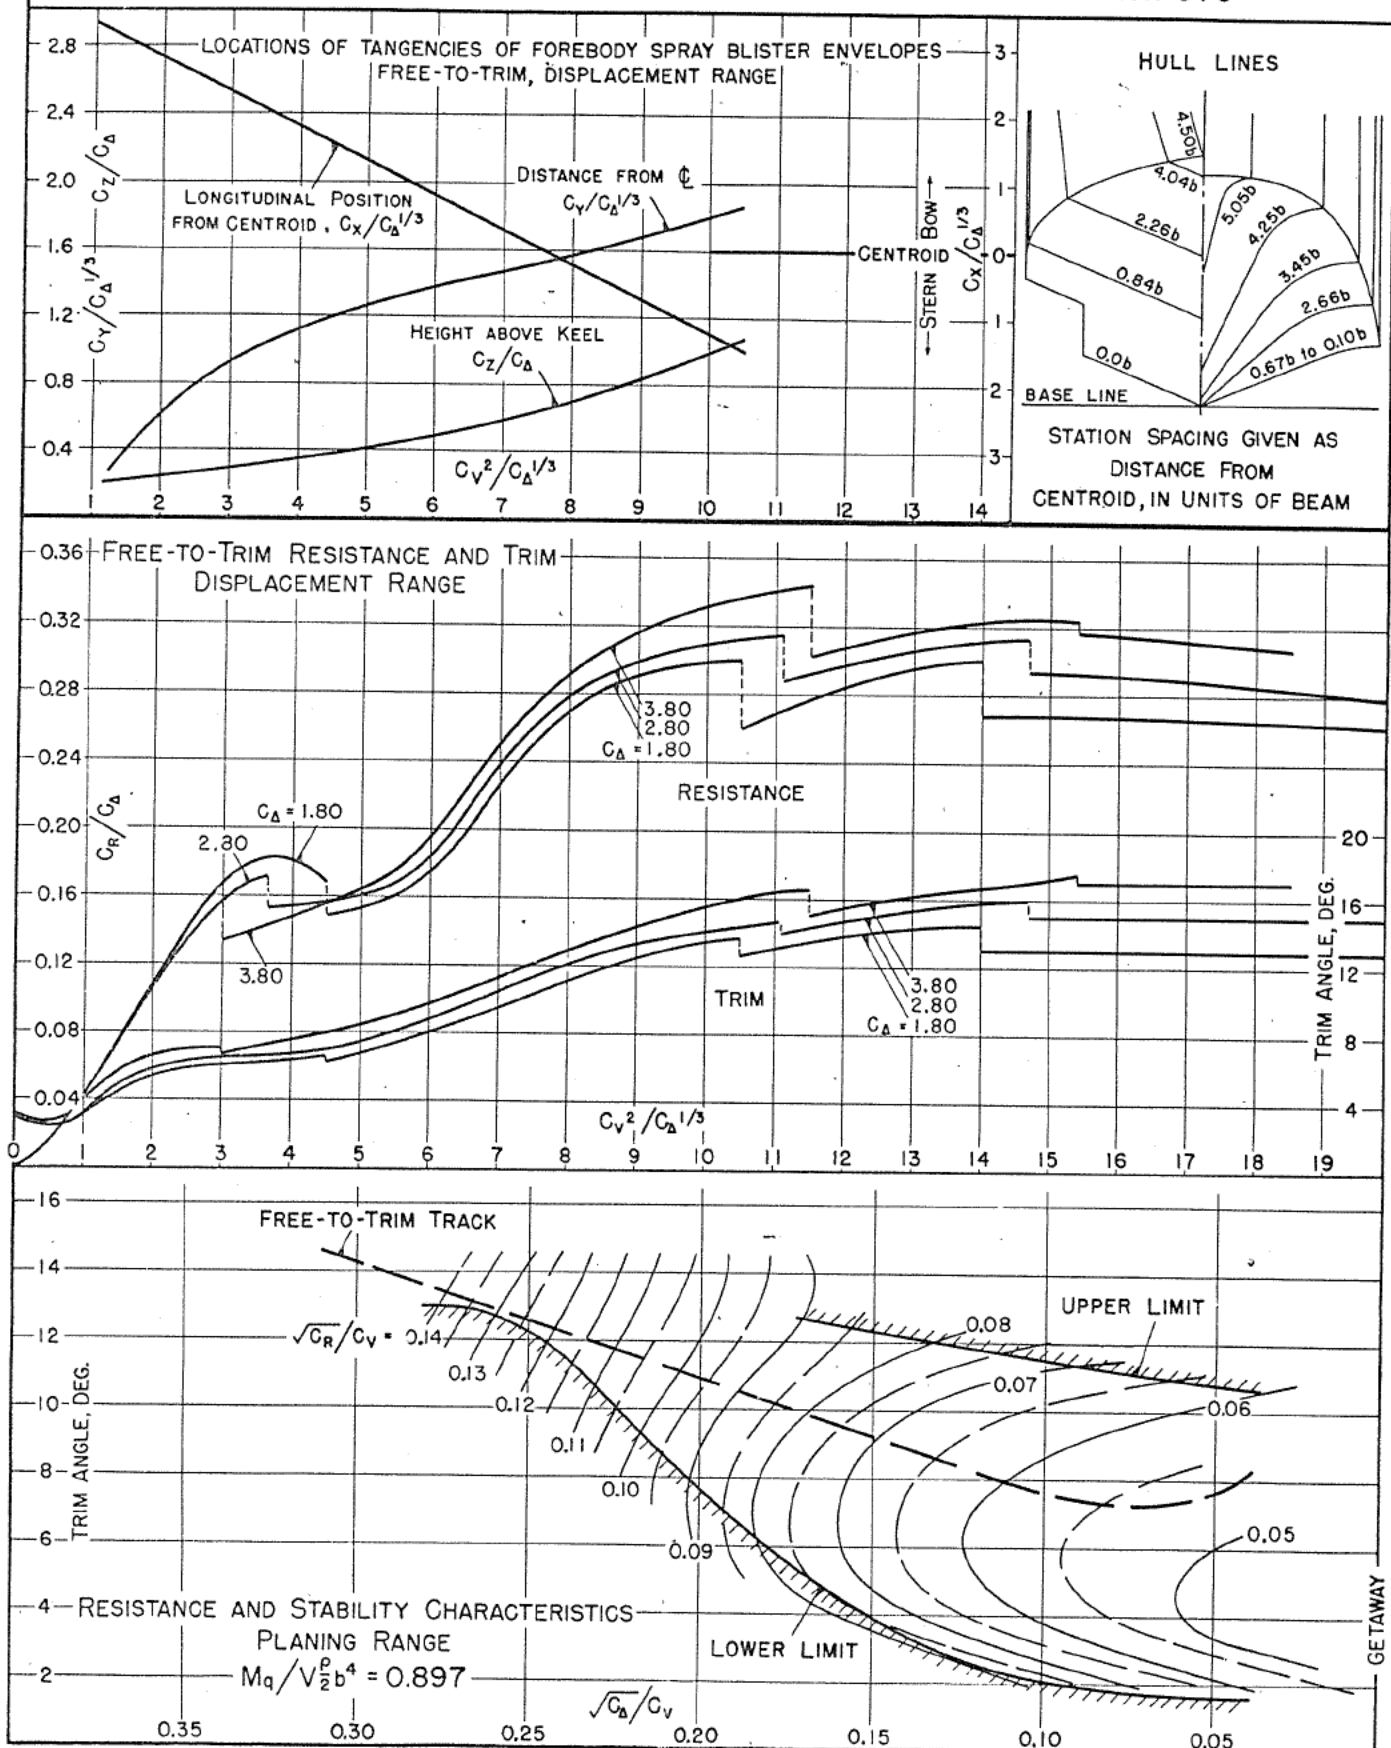 LOCATIONS OF TANGENCIES OF FOREBODY SPRAY BLISTER ENVELOPES
FREE-TO-TRIM, DISPLACEMENT RANGE
2.8
2.4
2.0
1.6
1.2
0.8
0.4
C_Z/C_Δ
C_Y/C_Δ^1/3
LONGITUDINAL POSITION
FROM CENTROID, C_X/C_Δ^1/3
DISTANCE FROM ℄
C_Y/C_Δ^1/3
HEIGHT ABOVE KEEL
C_Z/C_Δ
CENTROID
←STERN BOW→
C_X/C_Δ^1/3
3
2
1
0
1
2
3
C_V^2/C_Δ^1/3
1 2 3 4 5 6 7 8 9 10 11 12 13 14
HULL LINES
4.50b
4.04b
2.26b
0.84b
0.0b
5.05b
4.25b
3.45b
2.66b
0.67b to 0.10b
BASE LINE
STATION SPACING GIVEN AS
DISTANCE FROM
CENTROID, IN UNITS OF BEAM
FREE-TO-TRIM RESISTANCE AND TRIM
DISPLACEMENT RANGE
0.36
0.32
0.28
0.24
0.20
0.16
0.12
0.08
0.04
C_R/C_Δ
C_Δ = 1.80
2.80
3.80
3.80
2.80
C_Δ = 1.80
RESISTANCE
TRIM
3.80
2.80
C_Δ = 1.80
20
16
12
8
4
TRIM ANGLE, DEG.
C_V^2/C_Δ^1/3
0 1 2 3 4 5 6 7 8 9 10 11 12 13 14 15 16 17 18 19
16
14
12
10
8
6
4
2
TRIM ANGLE, DEG.
FREE-TO-TRIM TRACK
√C_R/C_V = 0.14
0.13
0.12
0.11
0.10
0.09
0.08
0.07
0.06
0.05
UPPER LIMIT
LOWER LIMIT
GETAWAY
RESISTANCE AND STABILITY CHARACTERISTICS
PLANING RANGE
M_q/V ρ/2 b^4 = 0.897
√C_Δ/C_V
0.35 0.30 0.25 0.20 0.15 0.10 0.05